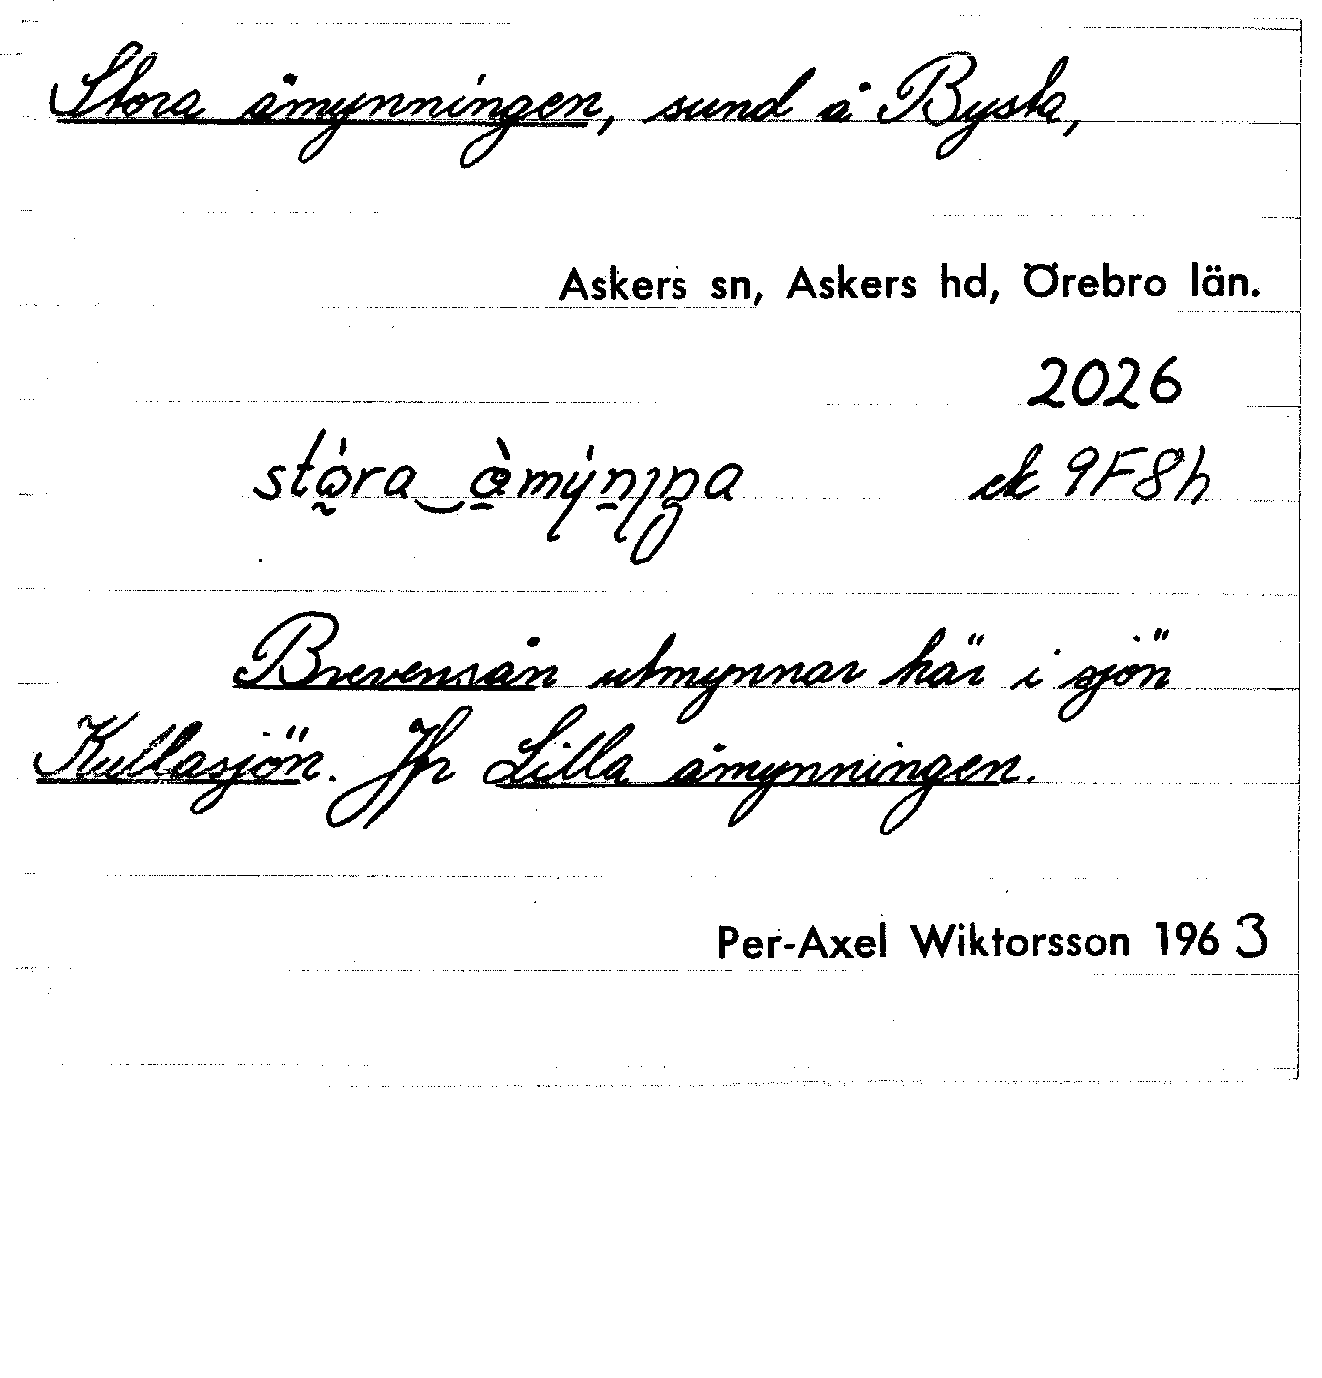 Stora åmynningen, sund å Bysta,
Askers sn, Askers hd, Örebro län.
2026
ek 9F8h
Brevensån utmynnar här i sjön
Kullasjön. Jfr Lilla åmynningen.
Per-Axel Wiktorsson 1963